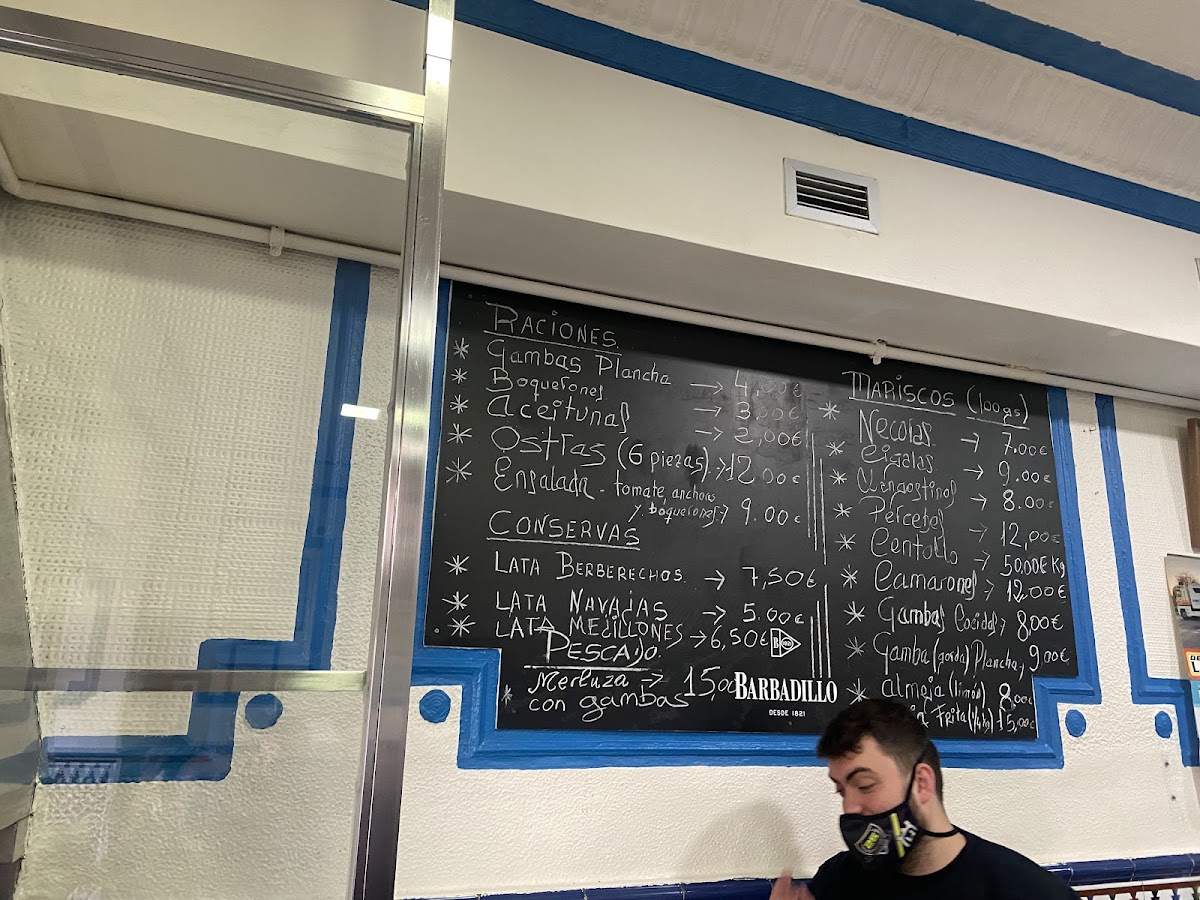 RACIONES
* Gambas Plancha → 4,00€
* Boquerones → 3,00€
* Aceitunas → 2,00€
* Ostras (6 piezas) → 12.00€
* Ensalada - tomate, anchoas
y boquerones → 9.00€
CONSERVAS
* LATA BERBERECHOS → 7,50€
* LATA NAVAJAS → 5.00€
* LATA MEJILLONES → 6,50€
PESCADO
* Merluza → 15,00
con gambas
BARBADILLO
DESDE 1821
MARISCOS (100gs)
* Necoras → 7.00€
* Cigalas → 9.00€
* Langostinos → 8.00€
* Percebes → 12,00€
* Centollo → 50,00€ Kg
* Camarones → 12,00€
* Gambas Cocidas → 8,00€
* Gamba (gorda) Plancha → 9,00€
* Almeja (limón) 8,00€
Frita (1/4 kg) 15,00€